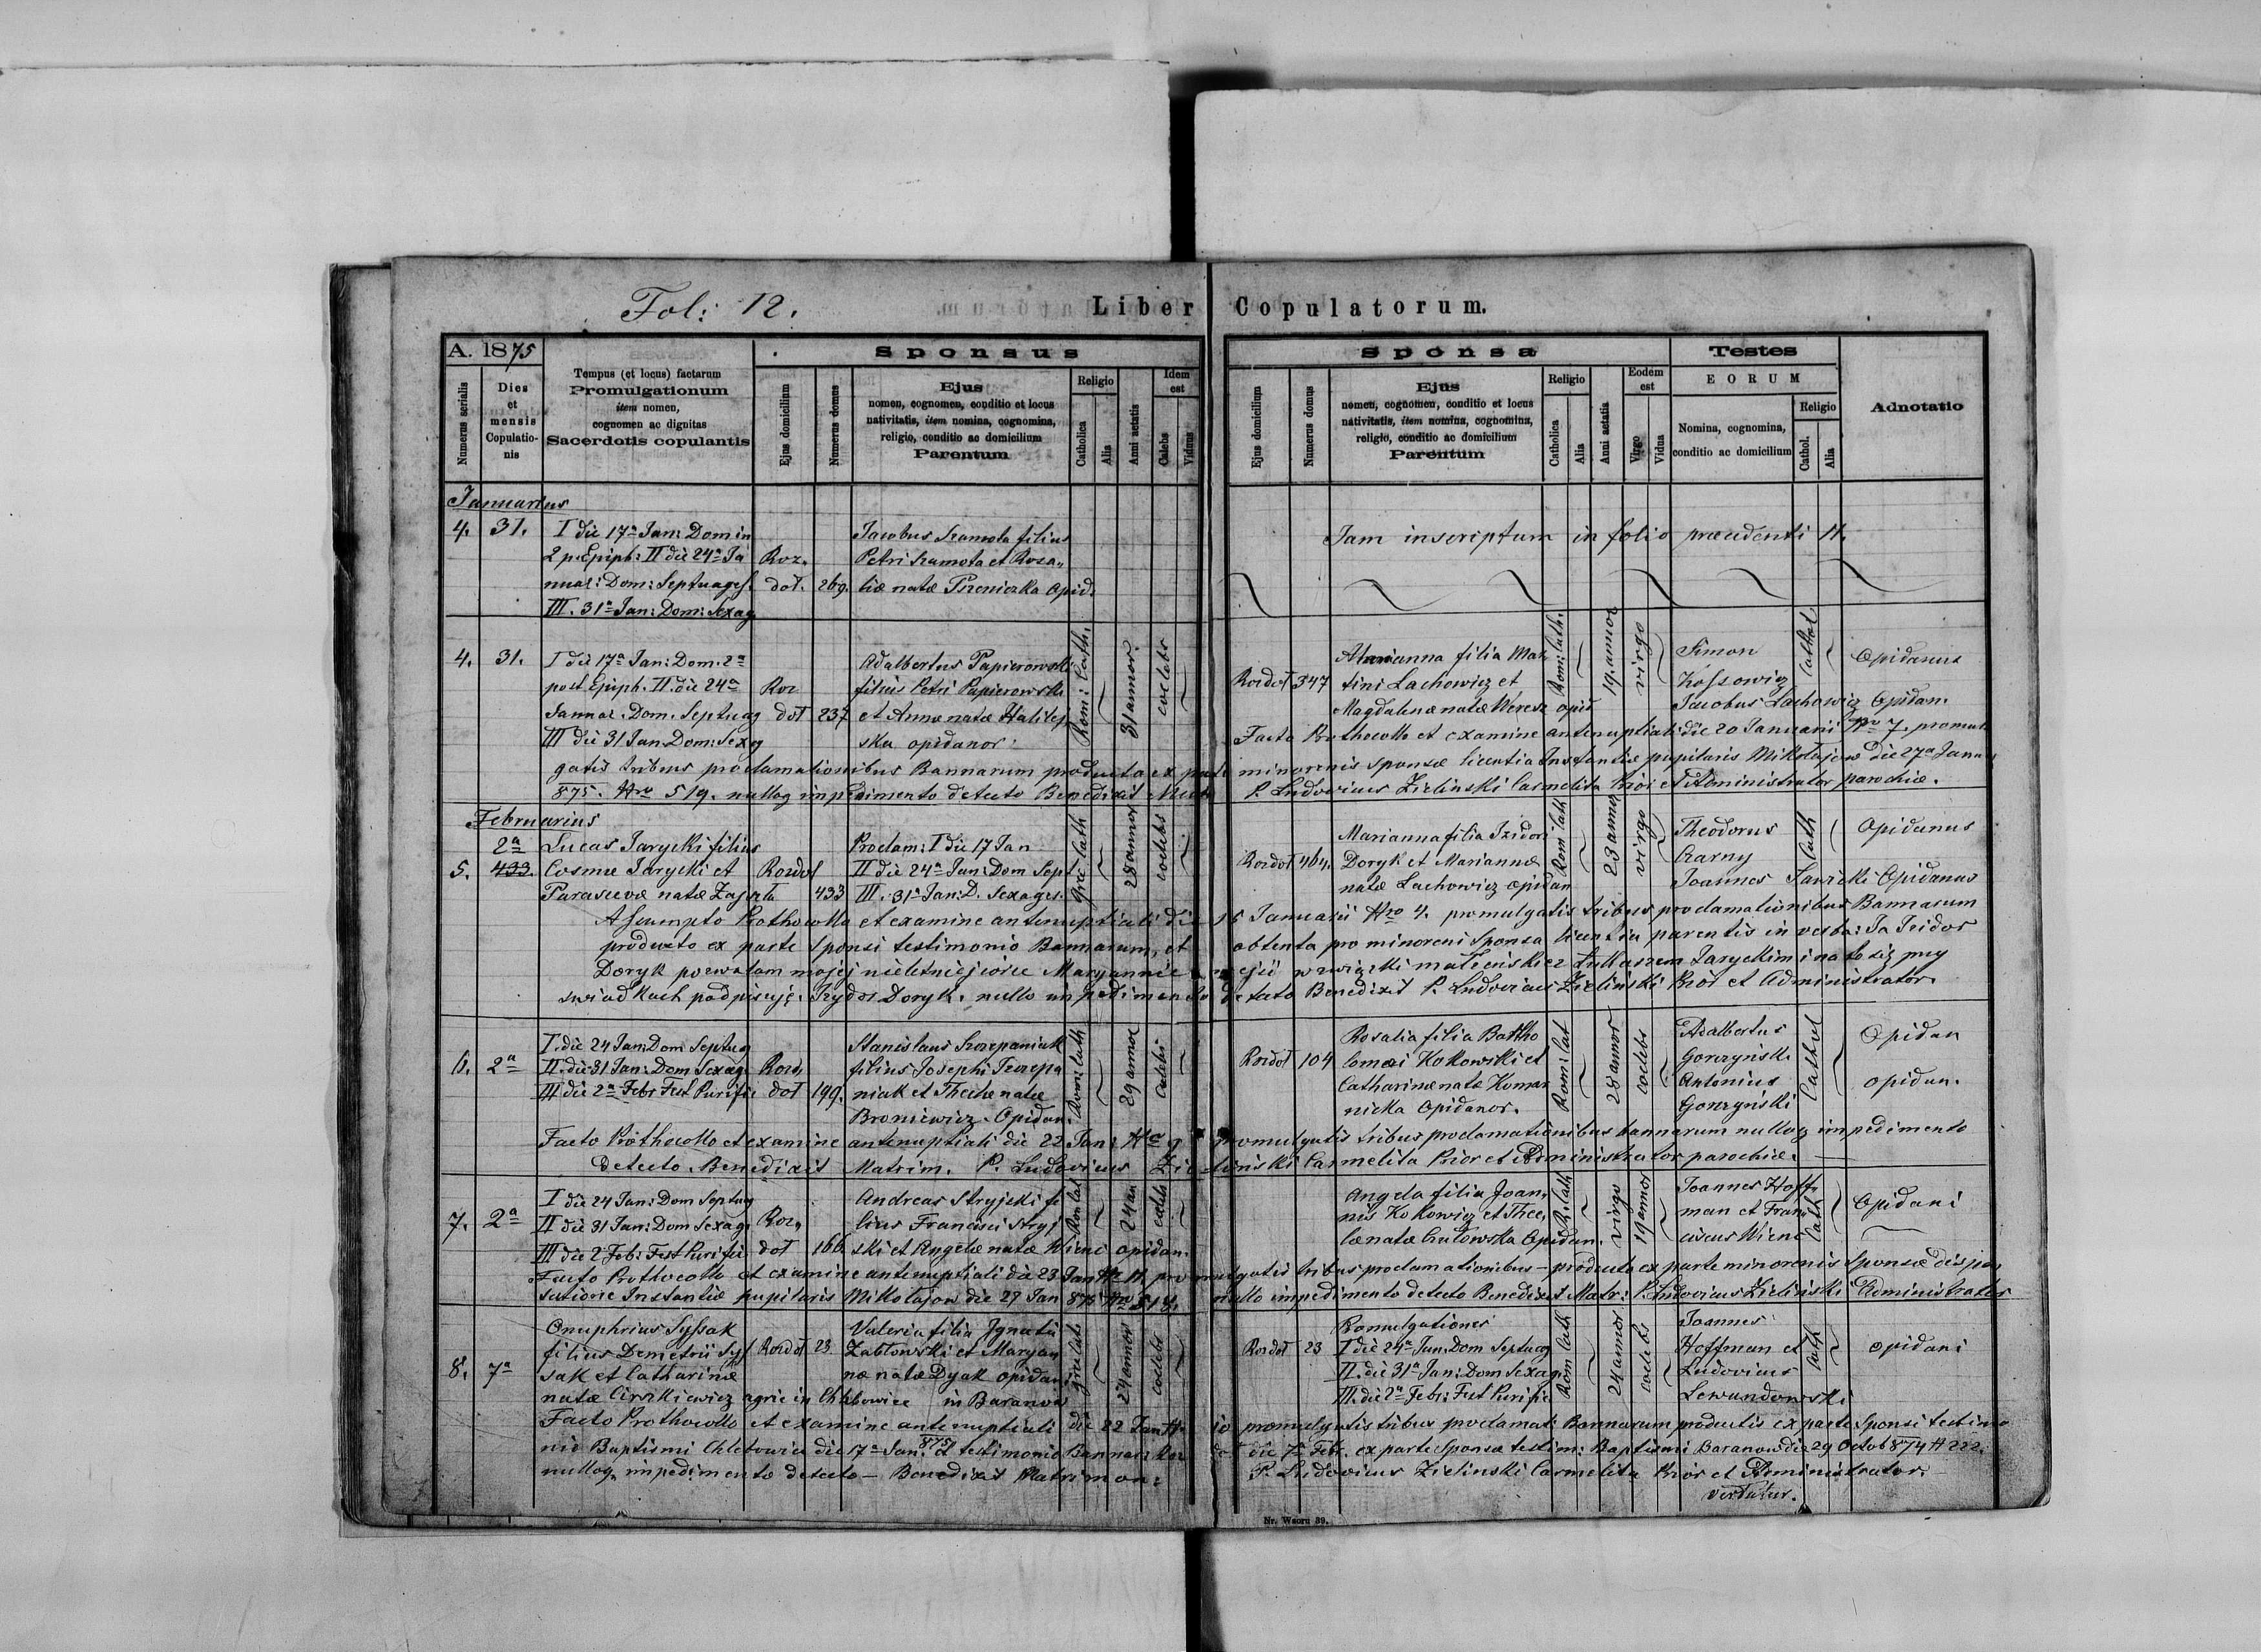 Fol: 12.
Liber Copulatorum.
A. 1875
Sponsus
Sponsa
Testes
Numerus serialis
Dies et mensis Copulationis
Tempus (et locus) factarum
Promulgationum
item nomen,
cognomen ac dignitas
Sacerdotis copulantis
Ejus domicilium
Numerus domus
Ejus
nomen, cognomen, conditio et locus
nativitatis, item nomina, cognomina,
religio, conditio ac domicilium
Parentum
Religio
Catholica
Alia
Anni aetatis
Idem est
Caelebs
Viduus
Ejus domicilium
Numerus domus
Ejus
nomen, cognomen, conditio et locus
nativitatis, item nomina, cognomina,
religio, conditio ac domicilium
Parentum
Religio
Catholica
Alia
Anni aetatis
Eodem est
Virgo
Vidua
EORUM
Nomina, cognomina,
conditio ac domicilium
Religio
Cathol.
Alia
Adnotatio
Januarius
4. 31. I die 17a Jan: Dom in Jacobus Szamota filius Jam inscriptum in folio praecedenti 11.
2 p. Epiph: II die 24a Ja Roz„ Petri Szamota et Roza„
nuar: Dom: Septuages. doł. 269. liae natae Pszeniczka opid.
III. 31a Jan: Dom: Sexag
4. 31. I die 17a Jan: Dom. 2a Adalbertus Papierowski Rom: Cath. 31 annor. coelebs Marianna filia Mar Rom: cath. 19. annor virgo Simon Cathol Opidanus
post Epiph. II. die 24a Roz filius Petri Papierowski Rozdoł 347 tini Lachowicz et Kossowicz
Januar. Dom. Septuag doł 237 et Annae natae Halilej Magdalenae natae Weresz opid Jacobus Lachowicz Opidan.
III die 31 Jan. Dom: Sexag ska opidanor. Facto Prothocollo et examine antenuptiali die 20 Januarii Nro 7. promul
gatis tribus proclamationibus Bannarum producta ex parte minorenis sponsae licentia Instantiae pupilaris Mikołajow die 27a Janu
875. Nro 519. nulloq impedimento detecto Benedixit Matr P. Ludovicus Zielinski Carmelita Prior et Administrator parochiae.
Februarius
2a Lucas Jarycki filius Proclam: I die 17 Jan Grec cath 28 annor coelebs Marianna filia Izidori Rom cath 23 annor virgo Theodorus Cath Opidanus
5. 433. Cosmae Jarycki et Rozdoł II die 24a Jan: Dom Sept Rozdoł 464. Doryk et Mariannae Czarny
Parascevae natae Zajęta 433 III. 31a Jan: D. Sexages. natae Lachowicz opidan Joannes Sawicki Opidanus
Assumpto Prothocollo et examine antenuptiali die 15 Januarii Nro 4. promulgatis tribus proclamationibus Bannarum
producto ex parte sponsi testimonio Bannarum, et obtenta pro minoreni Sponsa licentia parentis in verba: Ja Izidor
Doryk pozwalam mojej nieletniej córce Maryannie wejść w związki małżeńskie z Łukaszem Jaryckim i na to się przy
świadkach podpisuję. Izydor Doryk. nullo impedimento detecto Benedixit P. Ludovicus Zielinski Prior et Administrator.
I. die 24 Jan: Dom Septuag Stanislaus Szczepaniak Rom: cath 29 annor coelebs Rosalia filia Bartho Rom: cat 28 annor coelebs Adalbertus Cathol Opidan
6. 2a II. die 31 Jan: Dom Sexag. Roz„ filius Josephi Szczepa Rozdoł 104 lomaei Kokowski et Gonczyński
III die 2a Febr Fest Purific doł 199. niak et Theclae natae Catharinae natae Komar Antonius opidan.
Broniewicz. Opidan. nicka Opidanor. Gonczyński
Facto Prothocollo et examine antenuptiali die 22 Jan: Nro 9 promulgatis tribus proclamationibus bannarum nulloq impedimento
detecto. Benedixit Matrim. P. Ludovicus Zielinski Carmelita Prior et Administrator parochiae.
I die 24 Jan: Dom Septuag Andreas Stryjski fi Rom cat 24 an coelebs Angela filia Joan, R. Cath virgo 19 annor Joannes Hoff„
7. 2a II die 31 Jan: Dom Sexag. Roz„ lius Francisci Stryj nis Kokowicz et Thec, man et Fran Cath Opidani
III die 2 Feb: Fest Purific doł 166. ski et Angelae natae Wienc opidan. lae natae Gutowska Opidan. ciscus Wienc
Facto Prothocollo et examine antenuptiali die 23 Jan Nro 11. promulgatis tribus proclamationibus – producta ex parte minorenis Sponsae dispen
satione Instantiae pupilaris Mikołajow die 29 Jan 875 Nro 518. nullo impedimento detecto Benedixit Matr: P. Ludovicus Zielinski Administrator
Onuphrius Syssak Valeria filia Ignatii gr. cat 24 annor coelebs Promulgationes Rom cath 24 annor coelebs Joannes Cath
filius Demetrii Sys Rozdoł 23 Zabłowski et Maryan Rozdoł 23 I die 24a Jan: Dom Septuag Hoffman et opidani
8. 7a sak et Catharinae nae natae Dyak opidan: II. die 31a Jan: Dom Sexag. Ludovicus
natae Cirzkiewicz agric in Chlebowice in Baranow III. die 2a Febr: Fest Purific Lewandowski
Facto Prothocollo et examine antenuptiali die 22 Jan N. 10 promulgatis tribus proclamat: Bannarum productis ex parte Sponsi testimo
nio Baptismi Chlebowice die 17a Jan. 875 testimonio Bannar: Roz doł die 7a Febr. ex parte Sponsae testim: Baptismi Baranow die 29 Octob 874 N 222.
nulloq. impedimento detecto – Benedixit Matrimon: P. Ludovicus Zielinski Carmelita Prior et Administrator.
vertatur.
Nr. Wzoru 39.